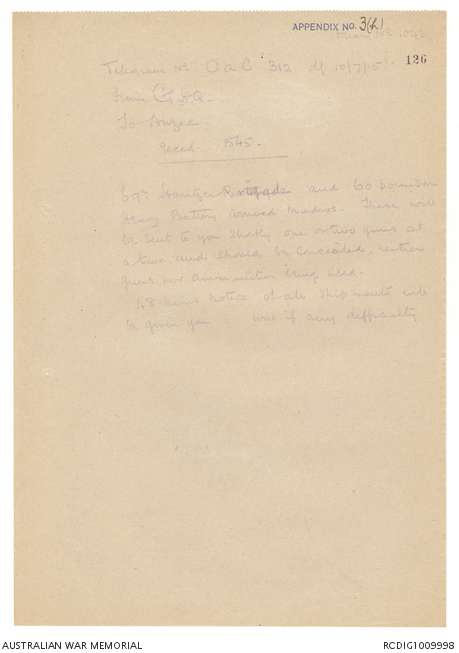 APPENDIX NO. 3(h)
126
Telegram No O a C 312 of 10/7/15
From G.H.Q.
To Anzac
Recd. 1545.
Howitzer Brigade and 60 pounder
Heavy Battery arrived Mudros. These will
be sent to you shortly one or two guns at
a time and should be concealed, neither
guns nor ammunition being used.
48 hours notice of each shipment will
be given you if any difficulty
AUSTRALIAN WAR MEMORIAL
RCDIG1009998